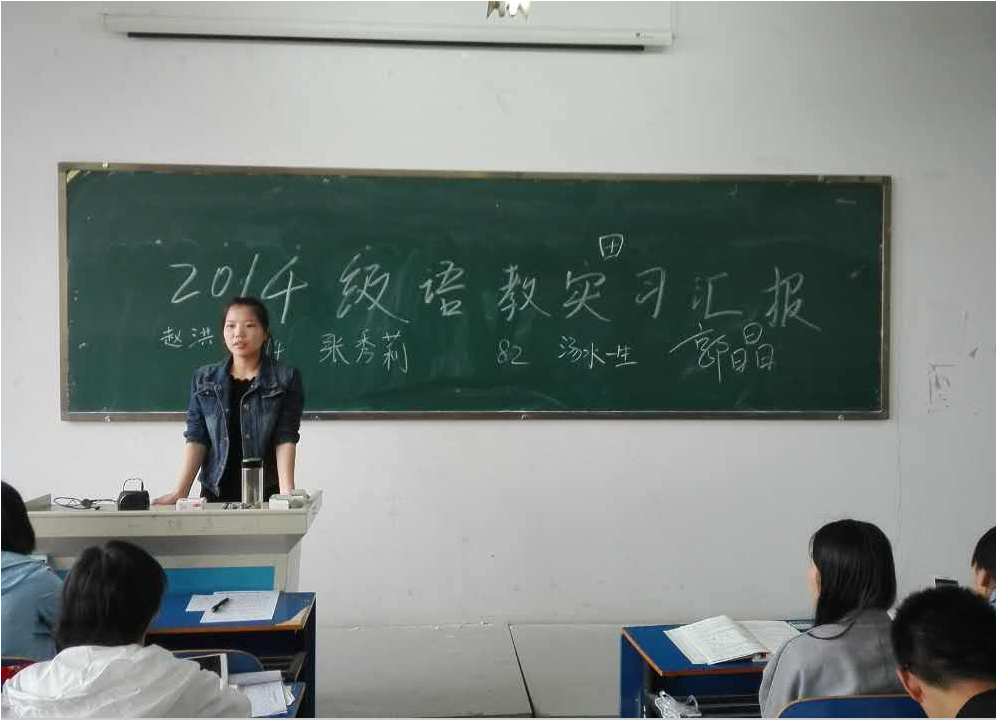 2014级语教实习汇报
田
赵洪 张秀莉 82 汤水生 郭晶